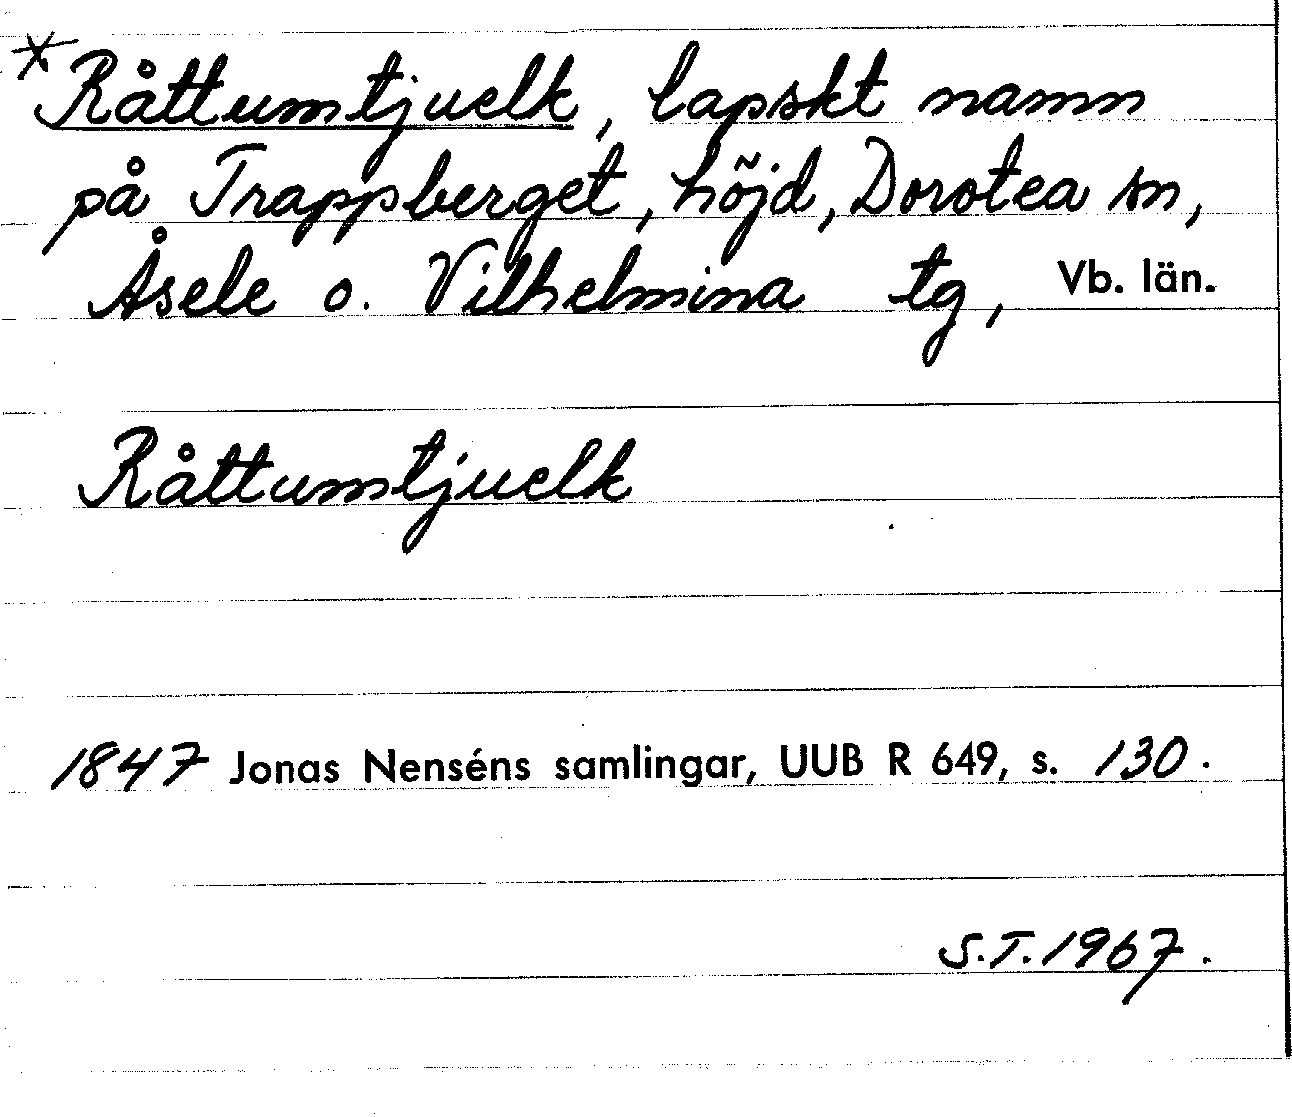 *Råttumtjuelk, lapskt namn
på Trappberget, höjd, Dorotea sn,
Åsele o. Vilhelmina tg, Vb. län.
Råttumtjuelk
1847 Jonas Nenséns samlingar, UUB R 649, s. 130.
S.T. 1967.